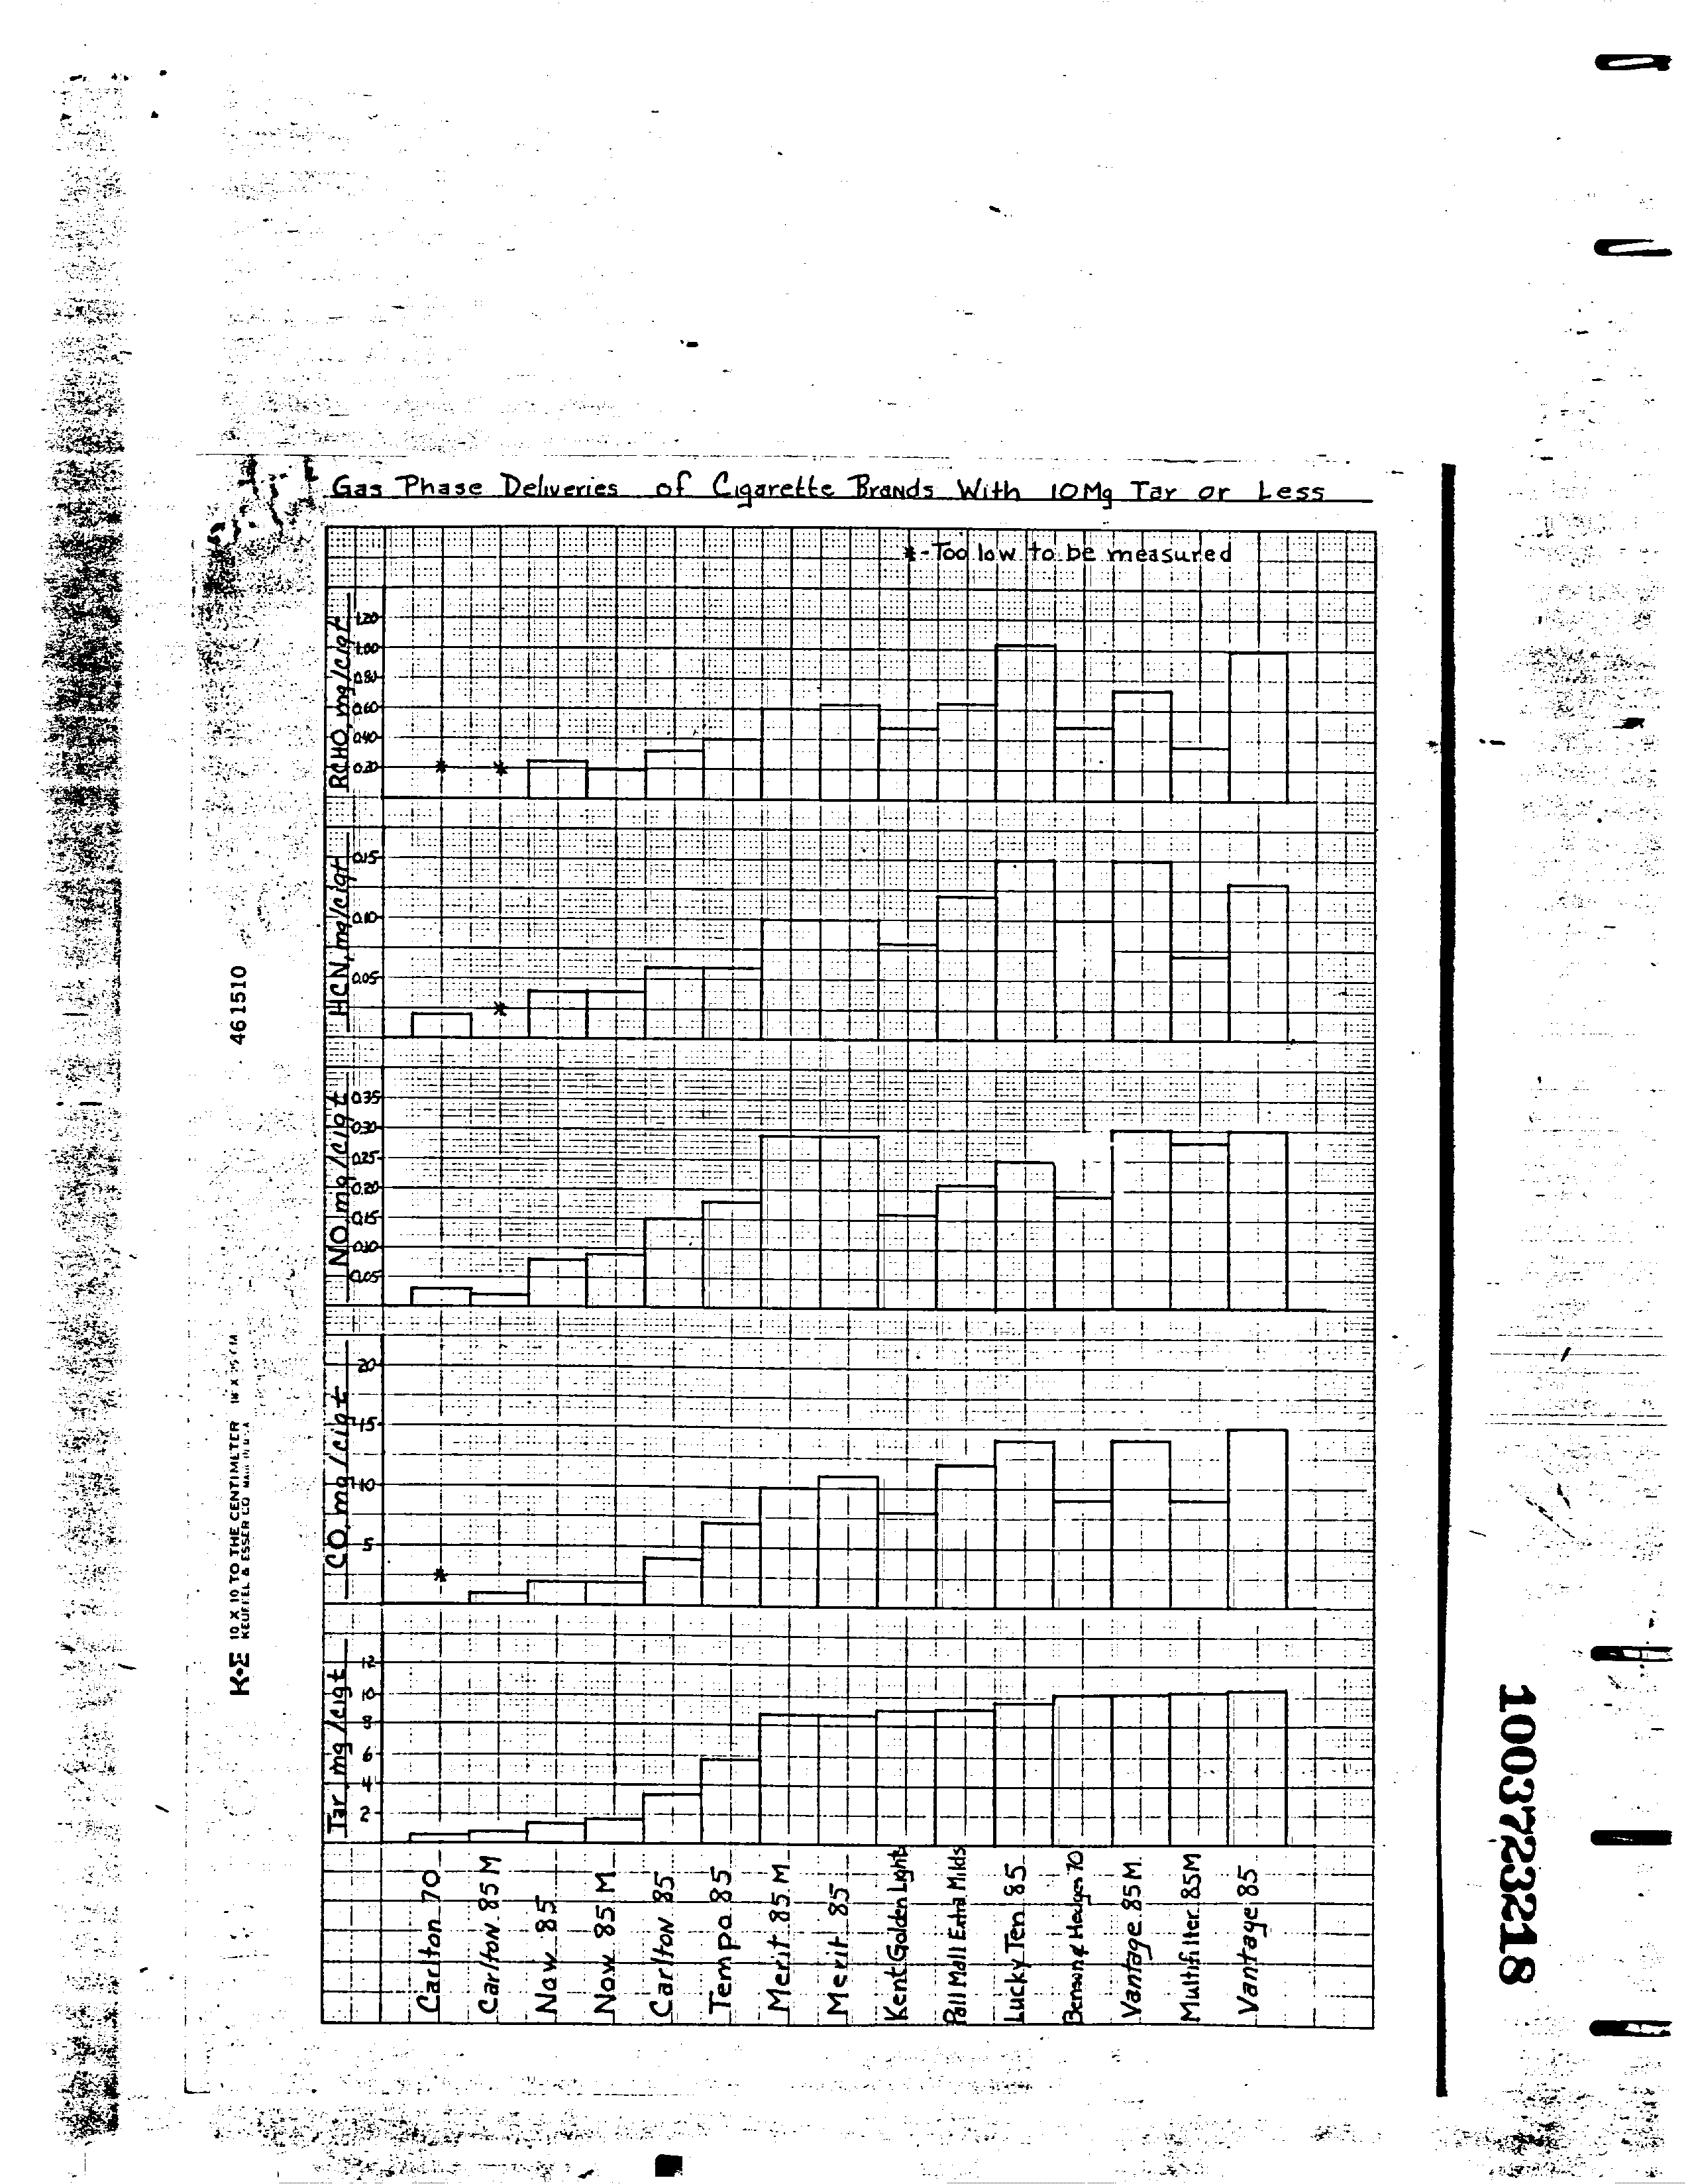 Gas Phase Deliveries of Cigarette Brands With 10Mg Tar or Less
* - Too low to be measured
RCHO, mg/cigt
1.20
1.00
0.80
0.60
0.40
0.20
* *
HCN, mg/cigt
0.15
0.10
0.05
*
NO, mg/cigt
0.35
0.30
0.25
0.20
0.15
0.10
0.05
CO, mg/cigt
20
15
10
5
*
Tar, mg/cigt
12
10
8
6
4
2
Carlton 70
Carlton 85 M
Now 85
Now 85 M
Carlton 85
Tempo 85
Merit 85 M
Merit 85
Kent Golden Light
Pall Mall Extra Milds
Lucky Ten 85
Benson & Hedges 70
Vantage 85 M
Multifilter 85 M
Vantage 85
46 1510
K•E 10 X 10 TO THE CENTIMETER
KEUFFEL & ESSER CO.
1003723218